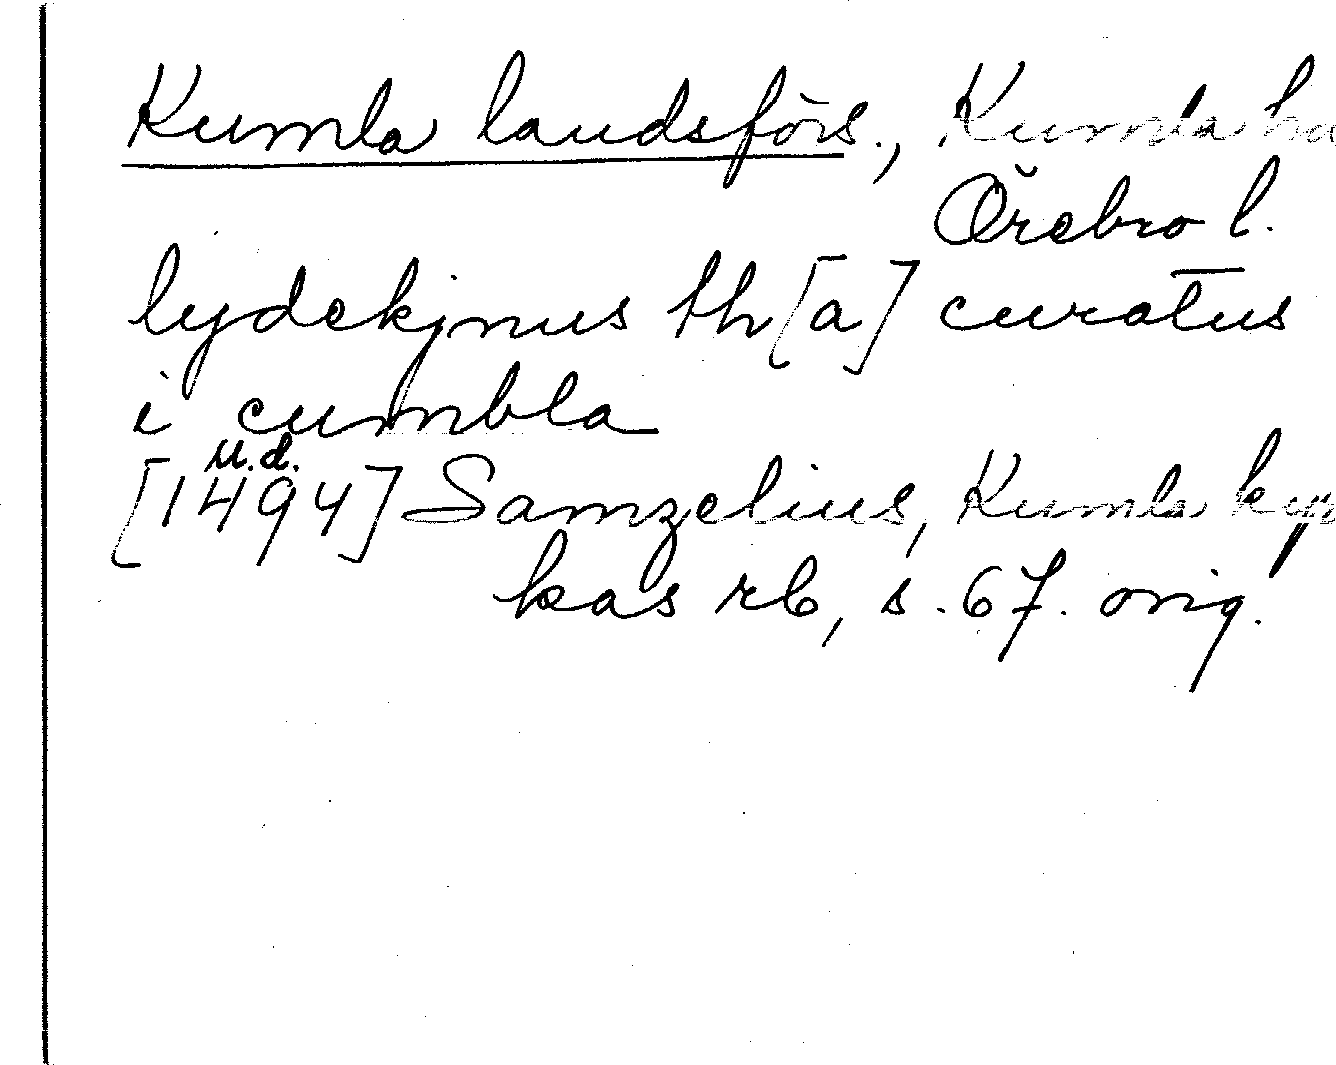 Kumla landsförs., Kumla
Örebro l.
lydekjnus th[a] curatus
i cumbla
u.d.
[1494] Samzelius, Kumla kyr
kas rb, s. 67. orig.